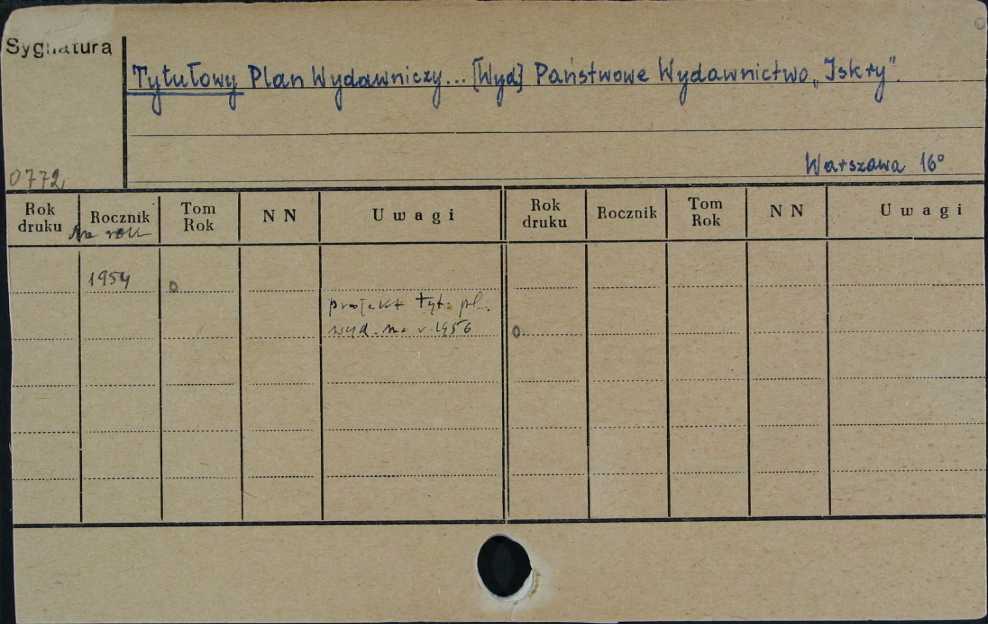 Sygnatura
Tytułowy Plan Wydawniczy... [Wyd] Państwowe Wydawnictwo „Iskry".
Warszawa 16°
0772,
Rok druku Rocznik Tom Rok NN Uwagi Rok druku Rocznik Tom Rok NN Uwagi
Na rok
1954 o
projekt tyt. pl.
wyd. na r. 1956 o